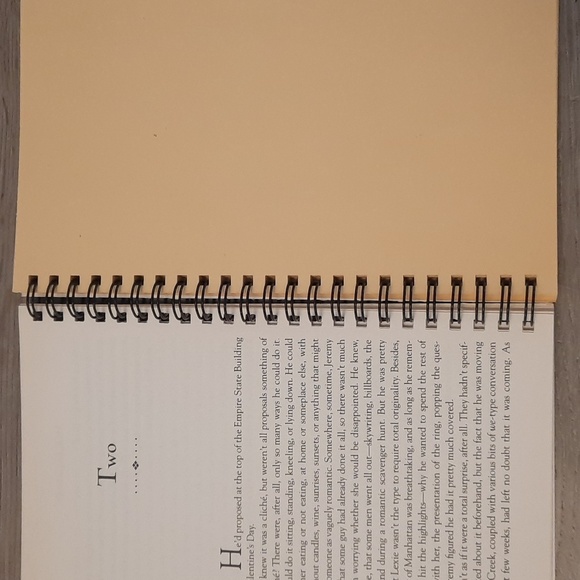 Two
He'd proposed at the top of the Empire State Building
lentine's Day.
knew it was a cliché, but weren't all proposals something of
é? There were, after all, only so many ways he could do it.
uld do it sitting, standing, kneeling, or lying down. He could
her eating or not eating, at home or someplace else, with
out candles, wine, sunrises, sunsets, or anything that might
omeone as vaguely romantic. Somewhere, sometime, Jeremy
hat some guy had already done it all, so there wasn't much
n worrying whether she would be disappointed. He knew,
e, that some men went all out—skywriting, billboards, the
nd during a romantic scavenger hunt. But he was pretty
Lexie wasn't the type to require total originality. Besides,
of Manhattan was breathtaking, and as long as he remem-
hit the highlights—why he wanted to spend the rest of
ith her, the presentation of the ring, popping the ques-
emy figured he had it pretty much covered.
't as if it were a total surprise, after all. They hadn't specif-
ed about it beforehand, but the fact that he was moving
Creek, coupled with various bits of we-type conversation
few weeks, had left no doubt that it was coming. As